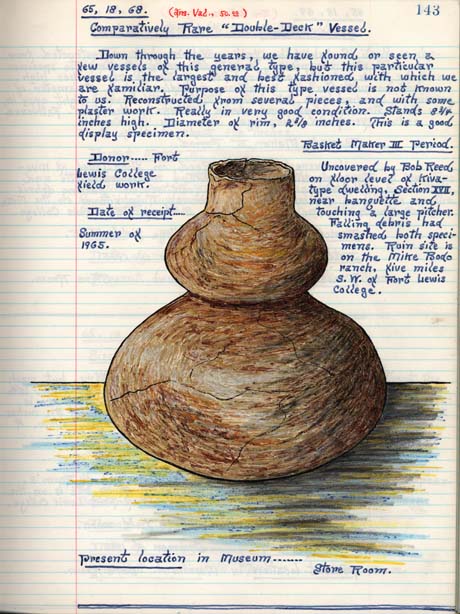 65, 18, 68. (Ins. Val., 50.00) 143
Comparatively Rare "Double-Deck" Vessel.
Down through the years, we have found or seen a
few vessels of this general type, but this particular
vessel is the largest and best fashioned with which we
are familiar. Purpose of this type vessel is not known
to us. Reconstructed from several pieces, and with some
plaster work. Really in very good condition. Stands 8 3/4
inches high. Diameter of rim, inches. This is a good
display specimen.
Basket Maker III Period.
Donor..... Fort
Lewis College
field work.
Date of receipt.....
Summer of
1965.
Uncovered by Bob Reed
on floor level of Kiva-
type dwelling, Section
near banquette and
touching a large pitcher.
Falling debris had
smashed both speci-
mens. Ruin site is
on the Mike Bodo
ranch, five miles
S.W. of Fort Lewis
College.
Present location in Museum.......
Store Room.